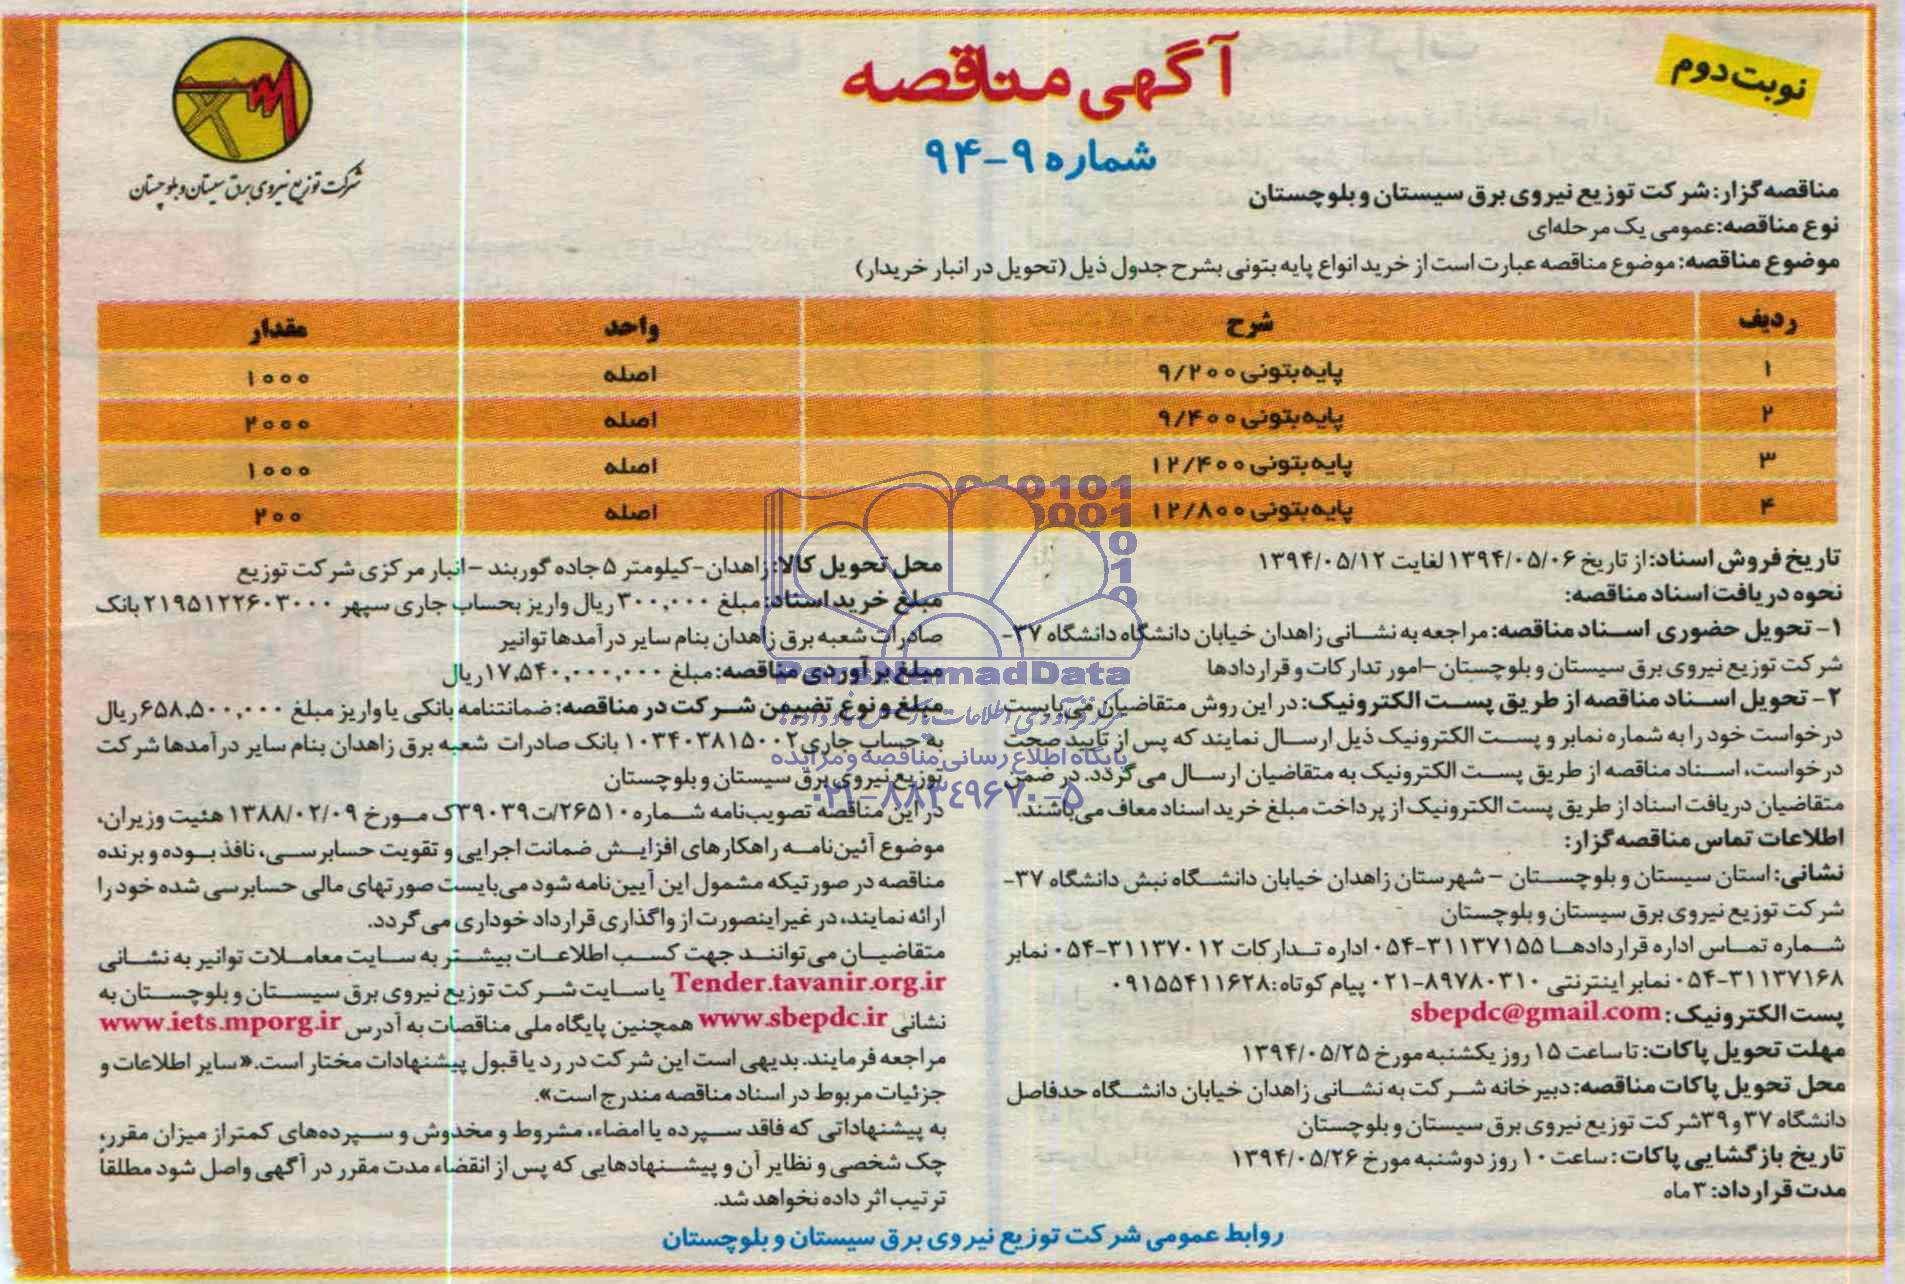 نوبت دوم
آگهی مناقصه
شماره ۹-۹۴
شرکت توزیع نیروی برق سیستان و بلوچستان
مناقصه‌گزار: شرکت توزیع نیروی برق سیستان و بلوچستان
نوع مناقصه: عمومی یک مرحله‌ای
موضوع مناقصه: موضوع مناقصه عبارت است از خرید انواع پایه بتونی بشرح جدول ذیل (تحویل در انبار خریدار)
ردیف شرح واحد مقدار
۱ پایه بتونی ۹/۲۰۰ اصله ۱۰۰۰
۲ پایه بتونی ۹/۴۰۰ اصله ۲۰۰۰
۳ پایه بتونی ۱۲/۴۰۰ اصله ۱۰۰۰
۴ پایه بتونی ۱۲/۸۰۰ اصله ۲۰۰
تاریخ فروش اسناد: از تاریخ ۱۳۹۴/۰۵/۰۶ لغایت ۱۳۹۴/۰۵/۱۲
نحوه دریافت اسناد مناقصه:
۱- تحویل حضوری اسناد مناقصه: مراجعه به نشانی زاهدان خیابان دانشگاه دانشگاه ۳۷-
شرکت توزیع نیروی برق سیستان و بلوچستان-امور تدارکات و قراردادها
۲- تحویل اسناد مناقصه از طریق پست الکترونیک: در این روش متقاضیان می‌بایست
درخواست خود را به شماره نمابر و پست الکترونیک ذیل ارسال نمایند که پس از تأیید صحت
درخواست، اسناد مناقصه از طریق پست الکترونیک به متقاضیان ارسال می‌گردد. در ضمن
متقاضیان دریافت اسناد از طریق پست الکترونیک از پرداخت مبلغ خرید اسناد معاف می‌باشند.
اطلاعات تماس مناقصه‌گزار:
نشانی: استان سیستان و بلوچستان - شهرستان زاهدان خیابان دانشگاه نبش دانشگاه ۳۷-
شرکت توزیع نیروی برق سیستان و بلوچستان
شماره تماس اداره قراردادها ۳۱۱۳۷۱۵۵-۰۵۴ اداره تدارکات ۳۱۱۳۷۰۱۲-۰۵۴ نمابر
۳۱۱۳۷۱۶۸-۰۵۴ نمابر اینترنتی ۸۹۷۸۰۳۱۰-۰۲۱ پیام کوتاه: ۰۹۱۵۵۴۱۱۶۲۸
پست الکترونیک: sbepdc@gmail.com
مهلت تحویل پاکات: تا ساعت ۱۵ روز یکشنبه مورخ ۱۳۹۴/۰۵/۲۵
محل تحویل پاکات مناقصه: دبیرخانه شرکت به نشانی زاهدان خیابان دانشگاه حدفاصل
دانشگاه ۳۷ و ۳۹ شرکت توزیع نیروی برق سیستان و بلوچستان
تاریخ بازگشایی پاکات: ساعت ۱۰ روز دوشنبه مورخ ۱۳۹۴/۰۵/۲۶
مدت قرارداد: ۳ ماه
محل تحویل کالا: زاهدان-کیلومتر ۵ جاده گوربند - انبار مرکزی شرکت توزیع
مبلغ خرید اسناد: مبلغ ۳۰۰,۰۰۰ ریال واریز بحساب جاری سپهر ۲۱۹۵۱۲۲۶۰۳۰۰۰ بانک
صادرات شعبه برق زاهدان بنام سایر درآمدها توانیر
مبلغ برآوردی مناقصه: مبلغ ۱۷,۵۴۰,۰۰۰,۰۰۰ ریال
مبلغ و نوع تضیمن شرکت در مناقصه: ضمانتنامه بانکی یا واریز مبلغ ۶۵۸,۵۰۰,۰۰۰ ریال
به حساب جاری ۱۰۳۴۰۳۸۱۵۰۰۲ بانک صادرات شعبه برق زاهدان بنام سایر درآمدها شرکت
توزیع نیروی برق سیستان و بلوچستان
در این مناقصه تصویب‌نامه شماره ۲۶۵۱۰/ت۳۹۰۳۹ک مورخ ۱۳۸۸/۰۲/۰۹ هئیت وزیران،
موضوع آئین‌نامه راهکارهای افزایش ضمانت اجرایی و تقویت حسابرسی، نافذ بوده و برنده
مناقصه در صورتیکه مشمول این آیین‌نامه شود می‌بایست صورتهای مالی حسابرسی شده خود را
ارائه نمایند، در غیر اینصورت از واگذاری قرارداد خوداری می‌گردد.
متقاضیان می‌توانند جهت کسب اطلاعات بیشتر به سایت معاملات توانیر به نشانی
Tender.tavanir.org.ir یا سایت شرکت توزیع نیروی برق سیستان و بلوچستان به
نشانی www.sbepdc.ir همچنین پایگاه ملی مناقصات به آدرس www.iets.mporg.ir
مراجعه فرمایند. بدیهی است این شرکت در رد یا قبول پیشنهادات مختار است. «سایر اطلاعات و
جزئیات مربوط در اسناد مناقصه مندرج است».
به پیشنهاداتی که فاقد سپرده یا امضاء، مشروط و مخدوش و سپرده‌های کمتر از میزان مقرر،
چک شخصی و نظایر آن و پیشنهادهایی که پس از انقضاء مدت مقرر در آگهی واصل شود مطلقاً
ترتیب اثر داده نخواهد شد.
روابط عمومی شرکت توزیع نیروی برق سیستان و بلوچستان
ParsNamadData
پایگاه اطلاع رسانی مناقصه و مزایده
۰۲۱-۸۸۳۴۹۶۷۰-۵